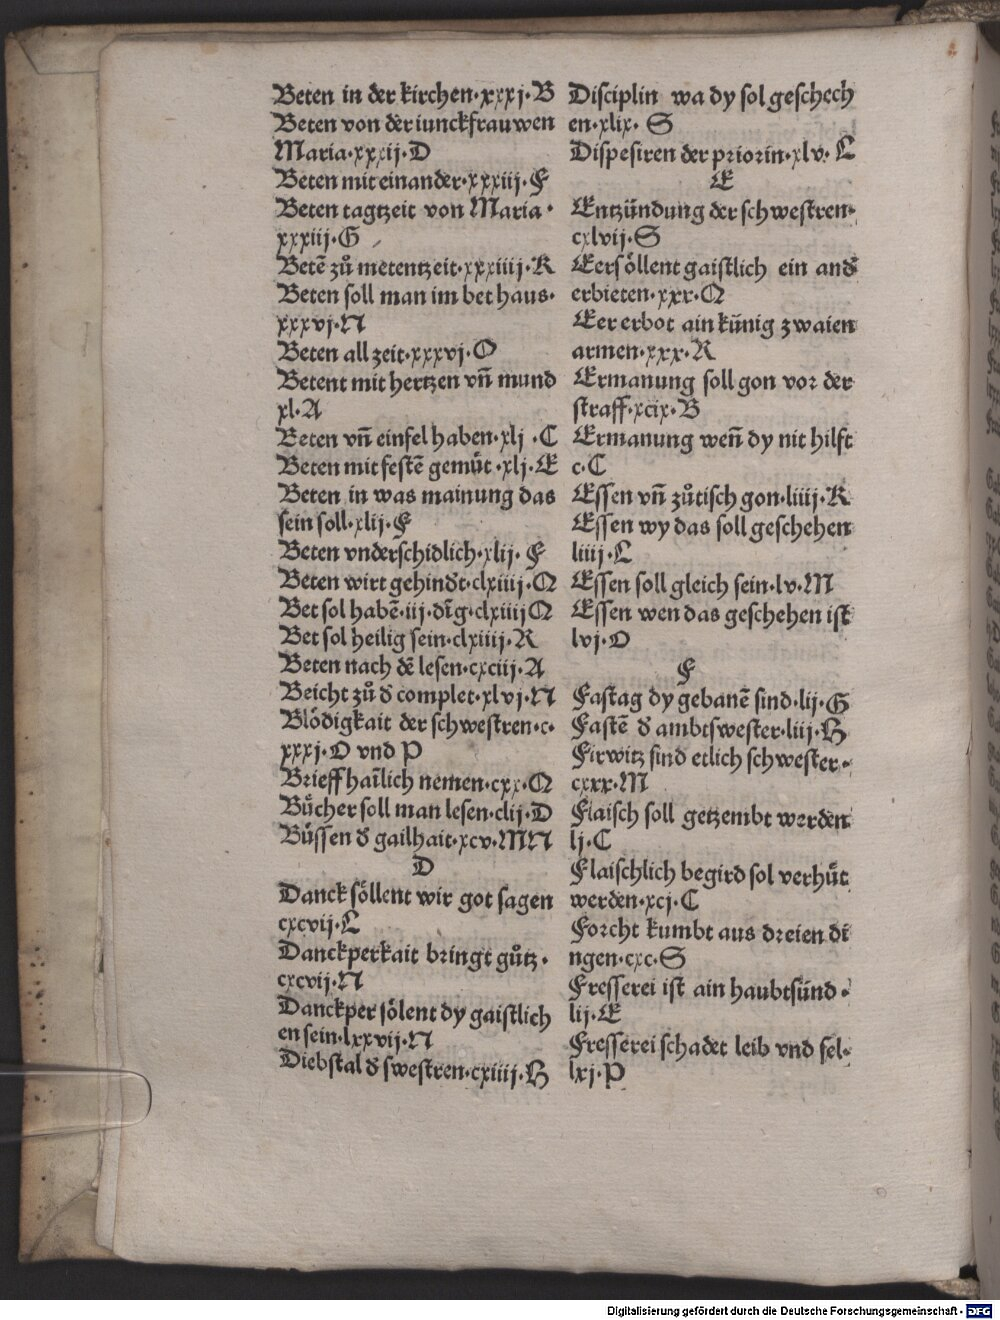 Beten in der kirchen·xxxj·B
Beten von der iunckfrauwen
Maria·xxxij·D
Beten mit einander·xxxiij·F
Beten tagtzeit von Maria·
xxxiij·G
Betē zů metentzeit·xxxiiij·K
Beten soll man im bethaus·
xxxvj·N
Beten all zeit·xxxvj·O
Betent mit hertzen vñ mund
xl·A
Beten vñ einfel haben·xlj·C
Beten mit festē gemuͤt·xlj·E
Beten in was mainung das
sein soll·xlij·F
Beten vnderschidlich·xlij·F
Beten wirt gehindt·clxiiij·Q
Bet sol habē·iij·dīg·clxiiij Q
Bet sol heilig sein·clxiiij·R
Beten nach dē lesen·cxciij·A
Beicht zů d complet·xlvj·N
Bloͤdigkait der schwestren·c·
xxxj·O vnd P
Brieff haīlich nemen·cxx·Q
Buͤcher soll man lesen·clij·D
Buͤssen d gailhait·xcv·MN
D
Danck soͤllent wir got sagen
cxcvij·L
Danckperkait bringt gůtz·
cxcvij·N
Danckper soͤlent dy gaistlich
en sein·lxxvij·N
Diebstal d swestren·cxiiij·H
Disciplin wa dy sol geschech
en·xlix·S
Dispesiren der priorin·xlv·L
E
Entzündung der schwestren·
cxlvij·S
Eer soͤllent gaistlich ein and
erbieten·xxx·Q
Eer erbot ain künig zwaien
armen·xxx·R
Ermanung soll gon vor der
straff·xcix·B
Ermanung weñ dy nit hilft
c·C
Essen vñ zů tisch gon·liiij·K
Essen wy das soll geschehen
liiij·L
Essen soll gleich sein·lv·M
Essen wen das geschehen ist
lvj·O
F
Fastag dy gebanē sind·lij·G
Fastē d ambtswester·liij·H
Firwitz sind etlich schwester·
cxxx·M
Flaisch soll getzembt werden
lj·C
Flaischlich begird sol verhuͤt
werden·xcj·C
Forcht kumbt aus dreien di
ngen·cxc·S
Fresserei ist ain haubtsünd·
lij·E
Fresserei schadet leib vnd sel·
lxj·P
Digitalisierung gefördert durch die Deutsche Forschungsgemeinschaft - DFG